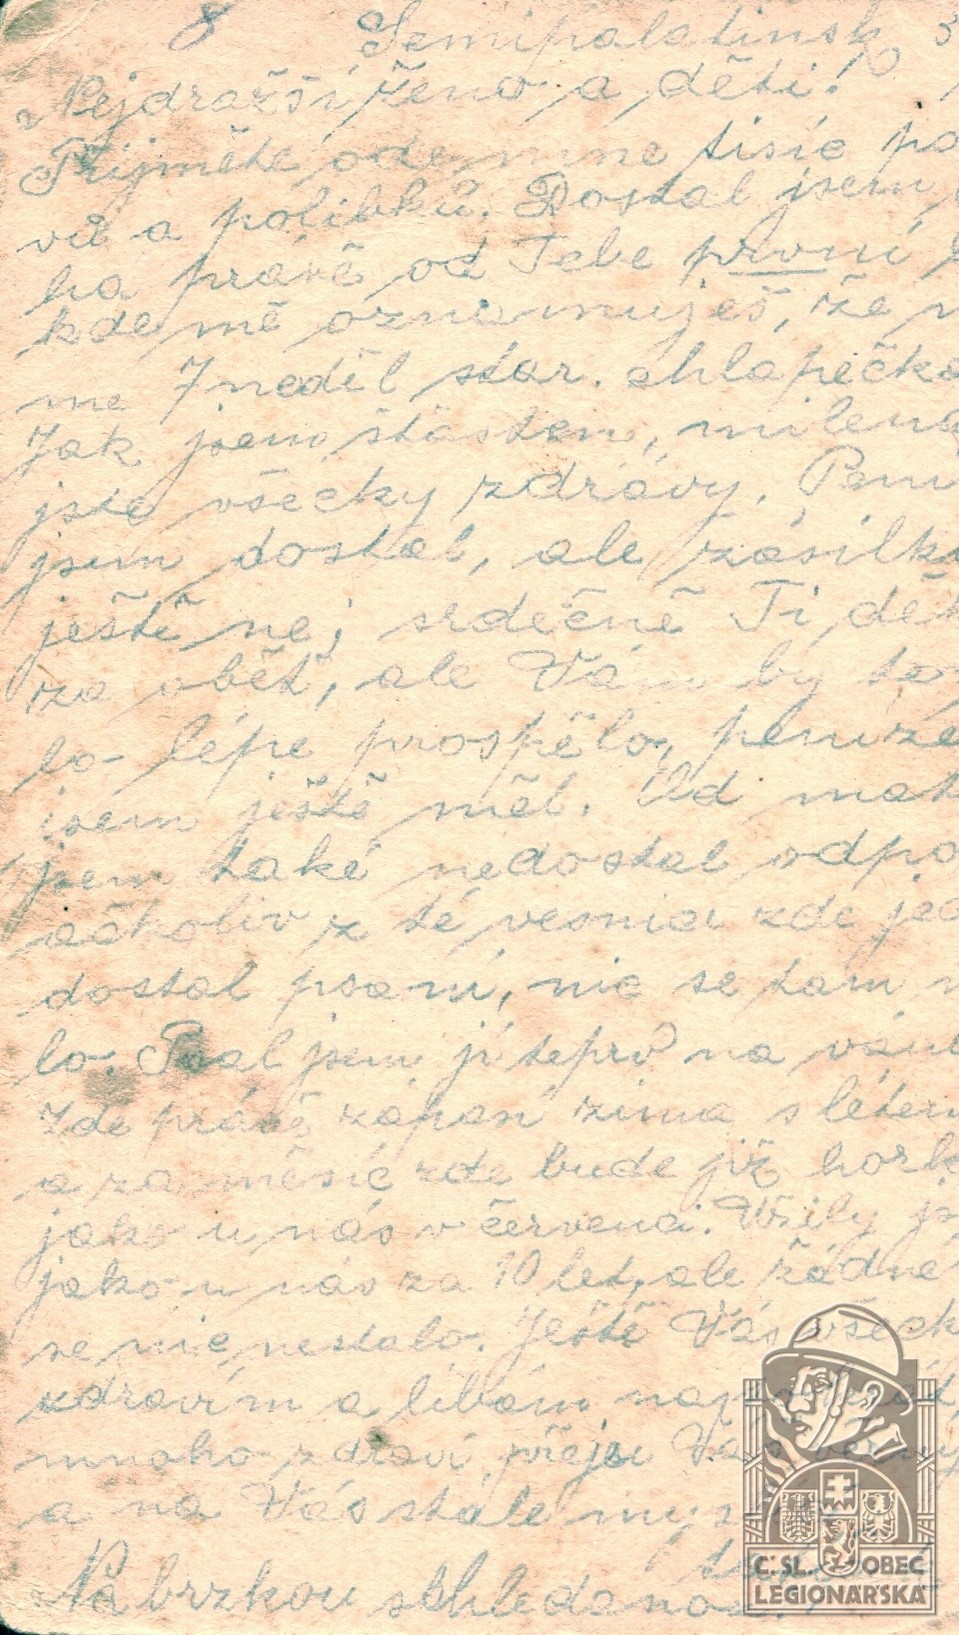 8 Semipalatinsk 3
Nejdražší ženo a děti!
Přijměte ode mne tisíc po
vů a polibků. Dostal jsem
ha právě od Tebe první
kde mě oznamuješ, že
me 7 neděl star. chlapečka
Jak jsem šťasten, milená
jste všecky zdrávy. Pení
jsem dostal, ale zásilku
ještě ne; srdečně Ti děk
za oběť, ale Vám by to
lo lépe prospělo, peníze
jsem ještě měl. Od mat
jsem také nedostal odpo
ačkoliv z té vesnice zde jed
dostal psaní, nic se tam n
lo. Psal jsem jí teprv na váno
Zde právě zápasí zima s létem
a za měsíc zde bude již hork
jako u nás v červenci. Vžily js
jako u nás za 10 let, ale žádné
se nic nestalo. Ještě Vás všeck
zdravím a líbám
mnoho zdraví, přeju Vás věrný
a na Vás stále
Na brzkou schledanou!
Č. SL. OBEC
LEGIONÁŘSKÁ